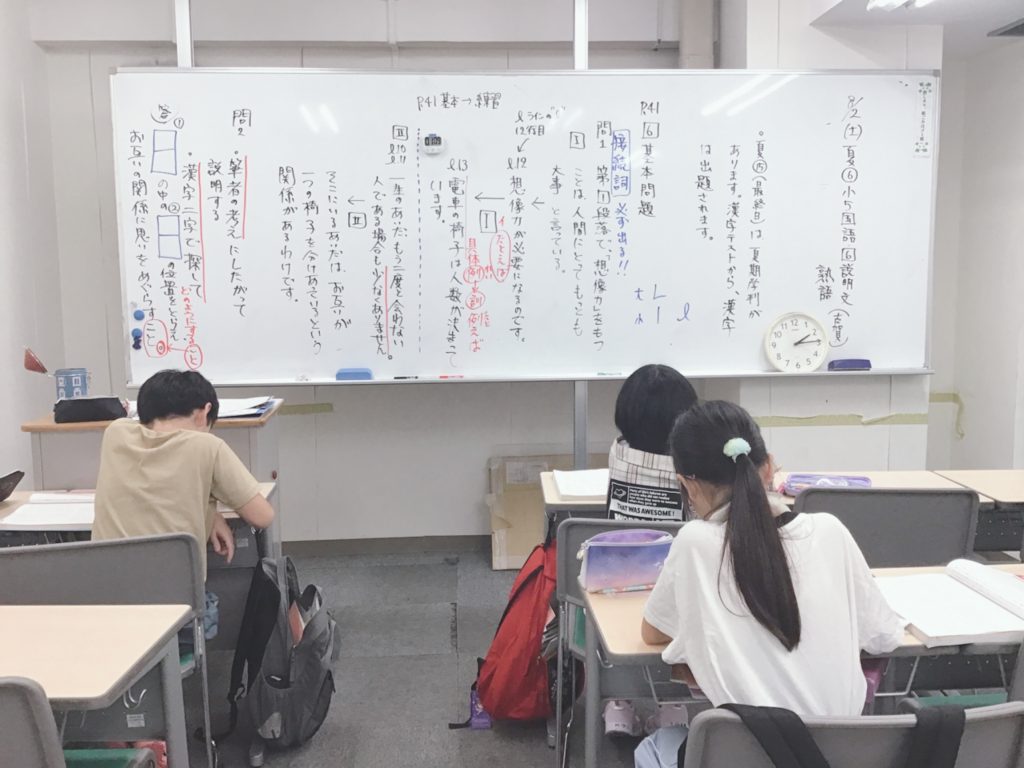 8/2(土) 夏⑥ 小5国語 ⑥説明文(古賀)
熟語
・夏⑮(最終日)は夏期学判が
あります。漢字テストから、漢字
は出題されます。
P.41 ⑥ 基本問題
接続詞 必ず出る!!
問1 第①段落で、「想像力」をもつ
ことは、人間にとってもっとも
大事 と言っている。
P.41 基本→練習
l.12 想像力が必要になるのです。
たとえば
具体例 例えば
l.13 電車の椅子は人数が決まって
います。
Ⅱ l.10 l.11 一生のあいだ、もう二度と会わない
人である場合も少なくありません。
Ⅱ
そこにいるあいだは、お互いが
一つの椅子を分けあっているという
関係があるわけです。
問2 ・筆者の考えにしたがって
説明する
・漢字二字で探して
どのようにすること
答 ① の中の ② の位置をとらえ、
お互いの関係に思いをめぐらすこと。
THAT WAS AWESOME!